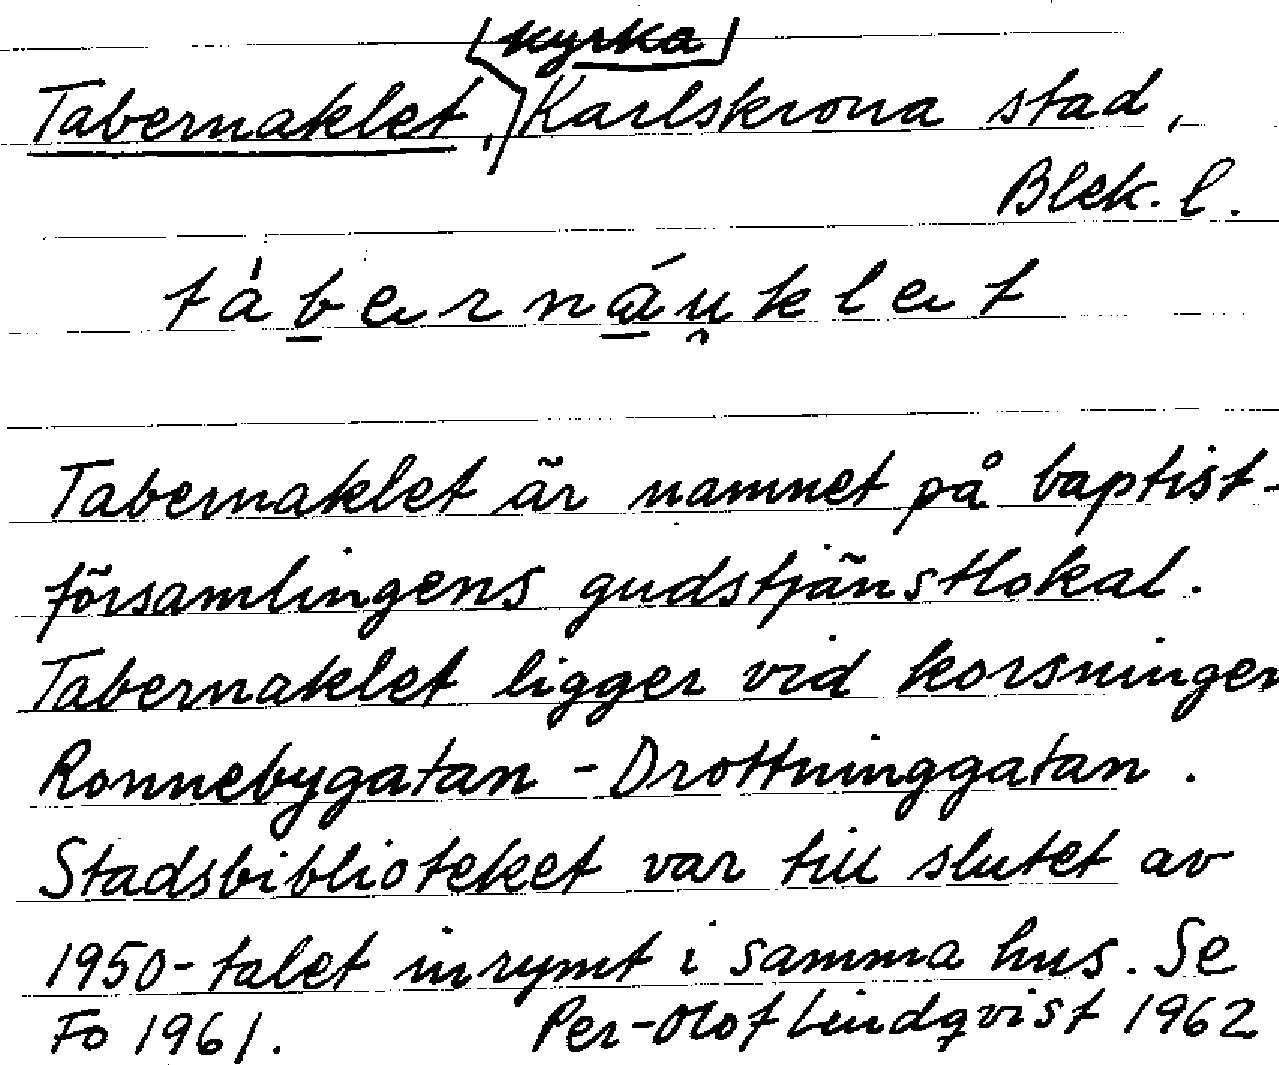 kyrka
Tabernaklet, Karlskrona stad,
Blek. l.
tàbernáu̯klet
Tabernaklet är namnet på baptist-
församlingens gudstjänstlokal.
Tabernaklet ligger vid korsningen
Ronnebygatan - Drottninggatan.
Stadsbiblioteket var till slutet av
1950-talet inrymt i samma hus. Se
Fo 1961. Per-Olof Lindqvist 1962